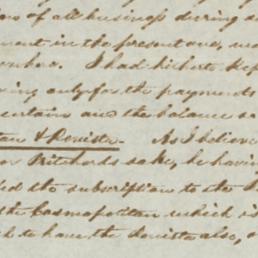 of all business during
ment in the present one,
I had hitherto kep
ing only for the payments
certain and the balance
& Review. As I believe
Pritchards sake, he having
ed the subscription to the
the Cosmopolitan which is
to have the Review also,